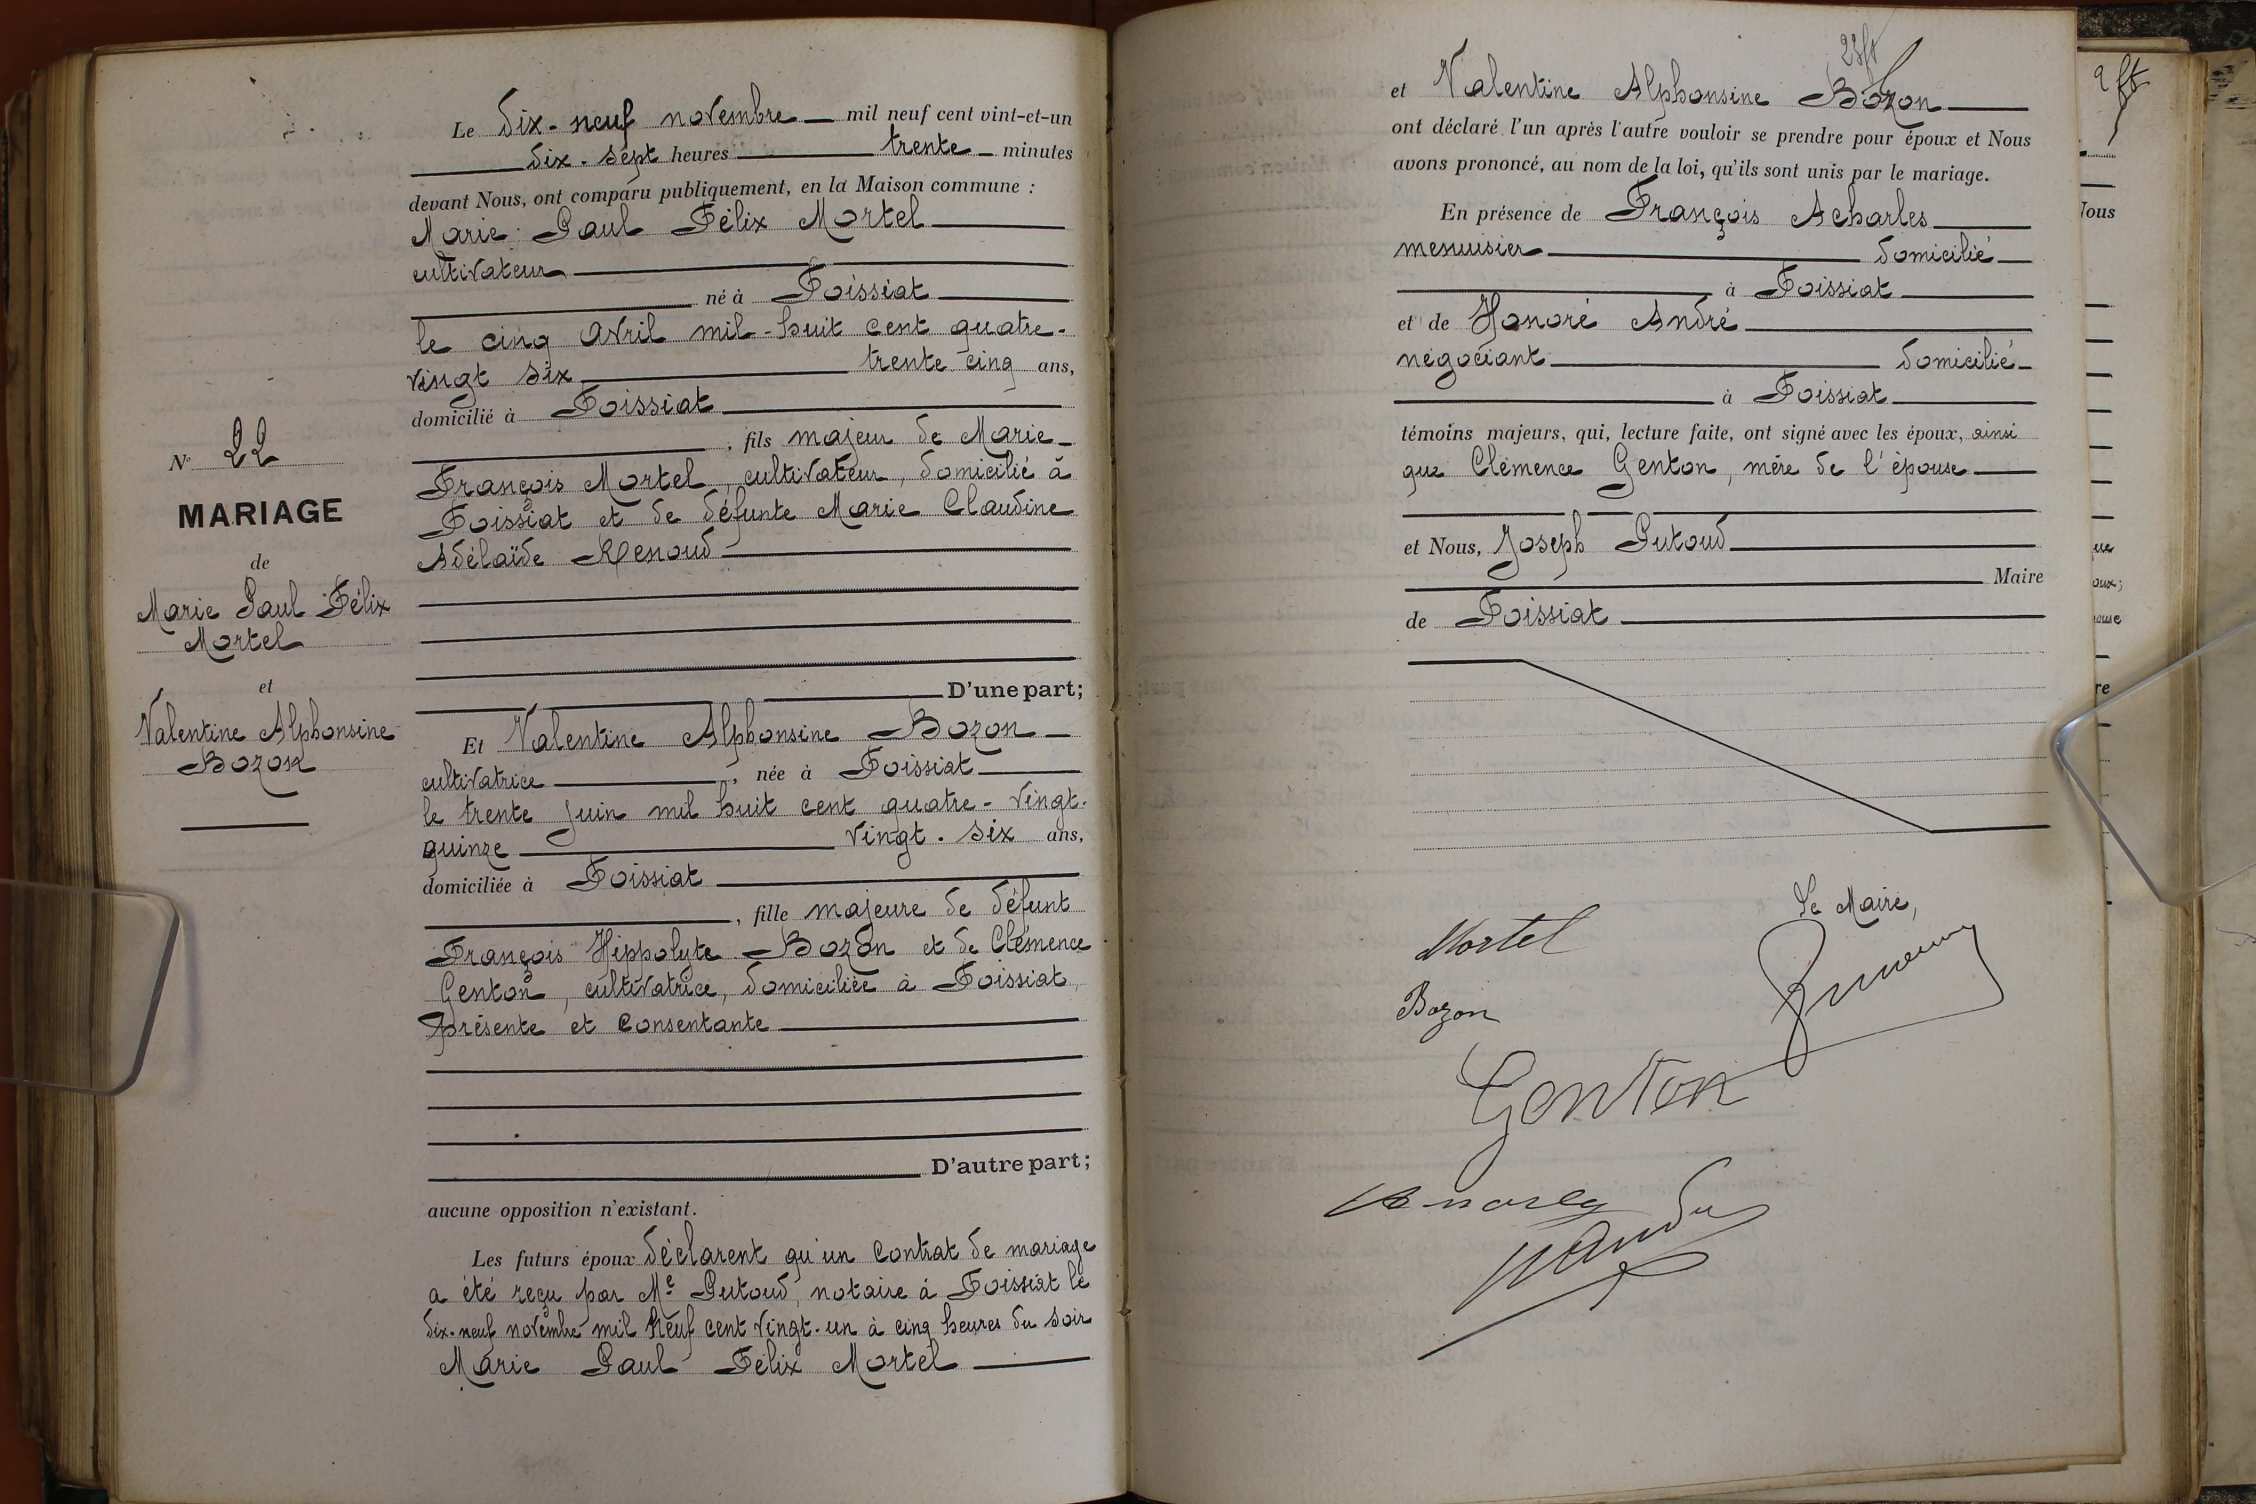 N° 22
MARIAGE
de
Marie Paul Félix
Mortel
et
Valentine Alphonsine
Bozon
Le dix-neuf novembre mil neuf cent vint-et-un
dix-sept heures trente minutes
devant Nous, ont comparu publiquement, en la Maison commune :
Marie Paul Félix Mortel
cultivateur
né à Foissiat
le cinq avril mil-huit cent quatre-
vingt six trente cinq ans,
domicilié à Foissiat
, fils majeur de Marie-
François Mortel, cultivateur, domicilié à
Foissiat et de défunte Marie Claudine
Adélaïde Renoud
D'une part;
Et Valentine Alphonsine Bozon
cultivatrice, née à Foissiat
le trente juin mil huit cent quatre-vingt-
quinze vingt-six ans,
domiciliée à Foissiat
, fille majeure de défunt
François Hippolyte Bozon et de Clémence
Genton, cultivatrice, domiciliée à Foissiat,
présente et consentante
D'autre part;
aucune opposition n'existant.
Les futurs époux déclarent qu'un contrat de mariage
a été reçu par Me Putoud, notaire à Foissiat le
dix-neuf novembre mil neuf cent vingt-un à cinq heures du soir
Marie Paul Félix Mortel
et Valentine Alphonsine Bozon
ont déclaré l'un après l'autre vouloir se prendre pour époux et Nous
avons prononcé, au nom de la loi, qu'ils sont unis par le mariage.
En présence de François Acharles
menuisier domicilié
à Foissiat
et de Honoré André
négociant domicilié
à Foissiat
témoins majeurs, qui, lecture faite, ont signé avec les époux, ainsi
que Clémence Genton, mère de l'épouse
et Nous, Joseph Putoud
Maire
de Foissiat
Le Maire,
Mortel
Bozon
Genton